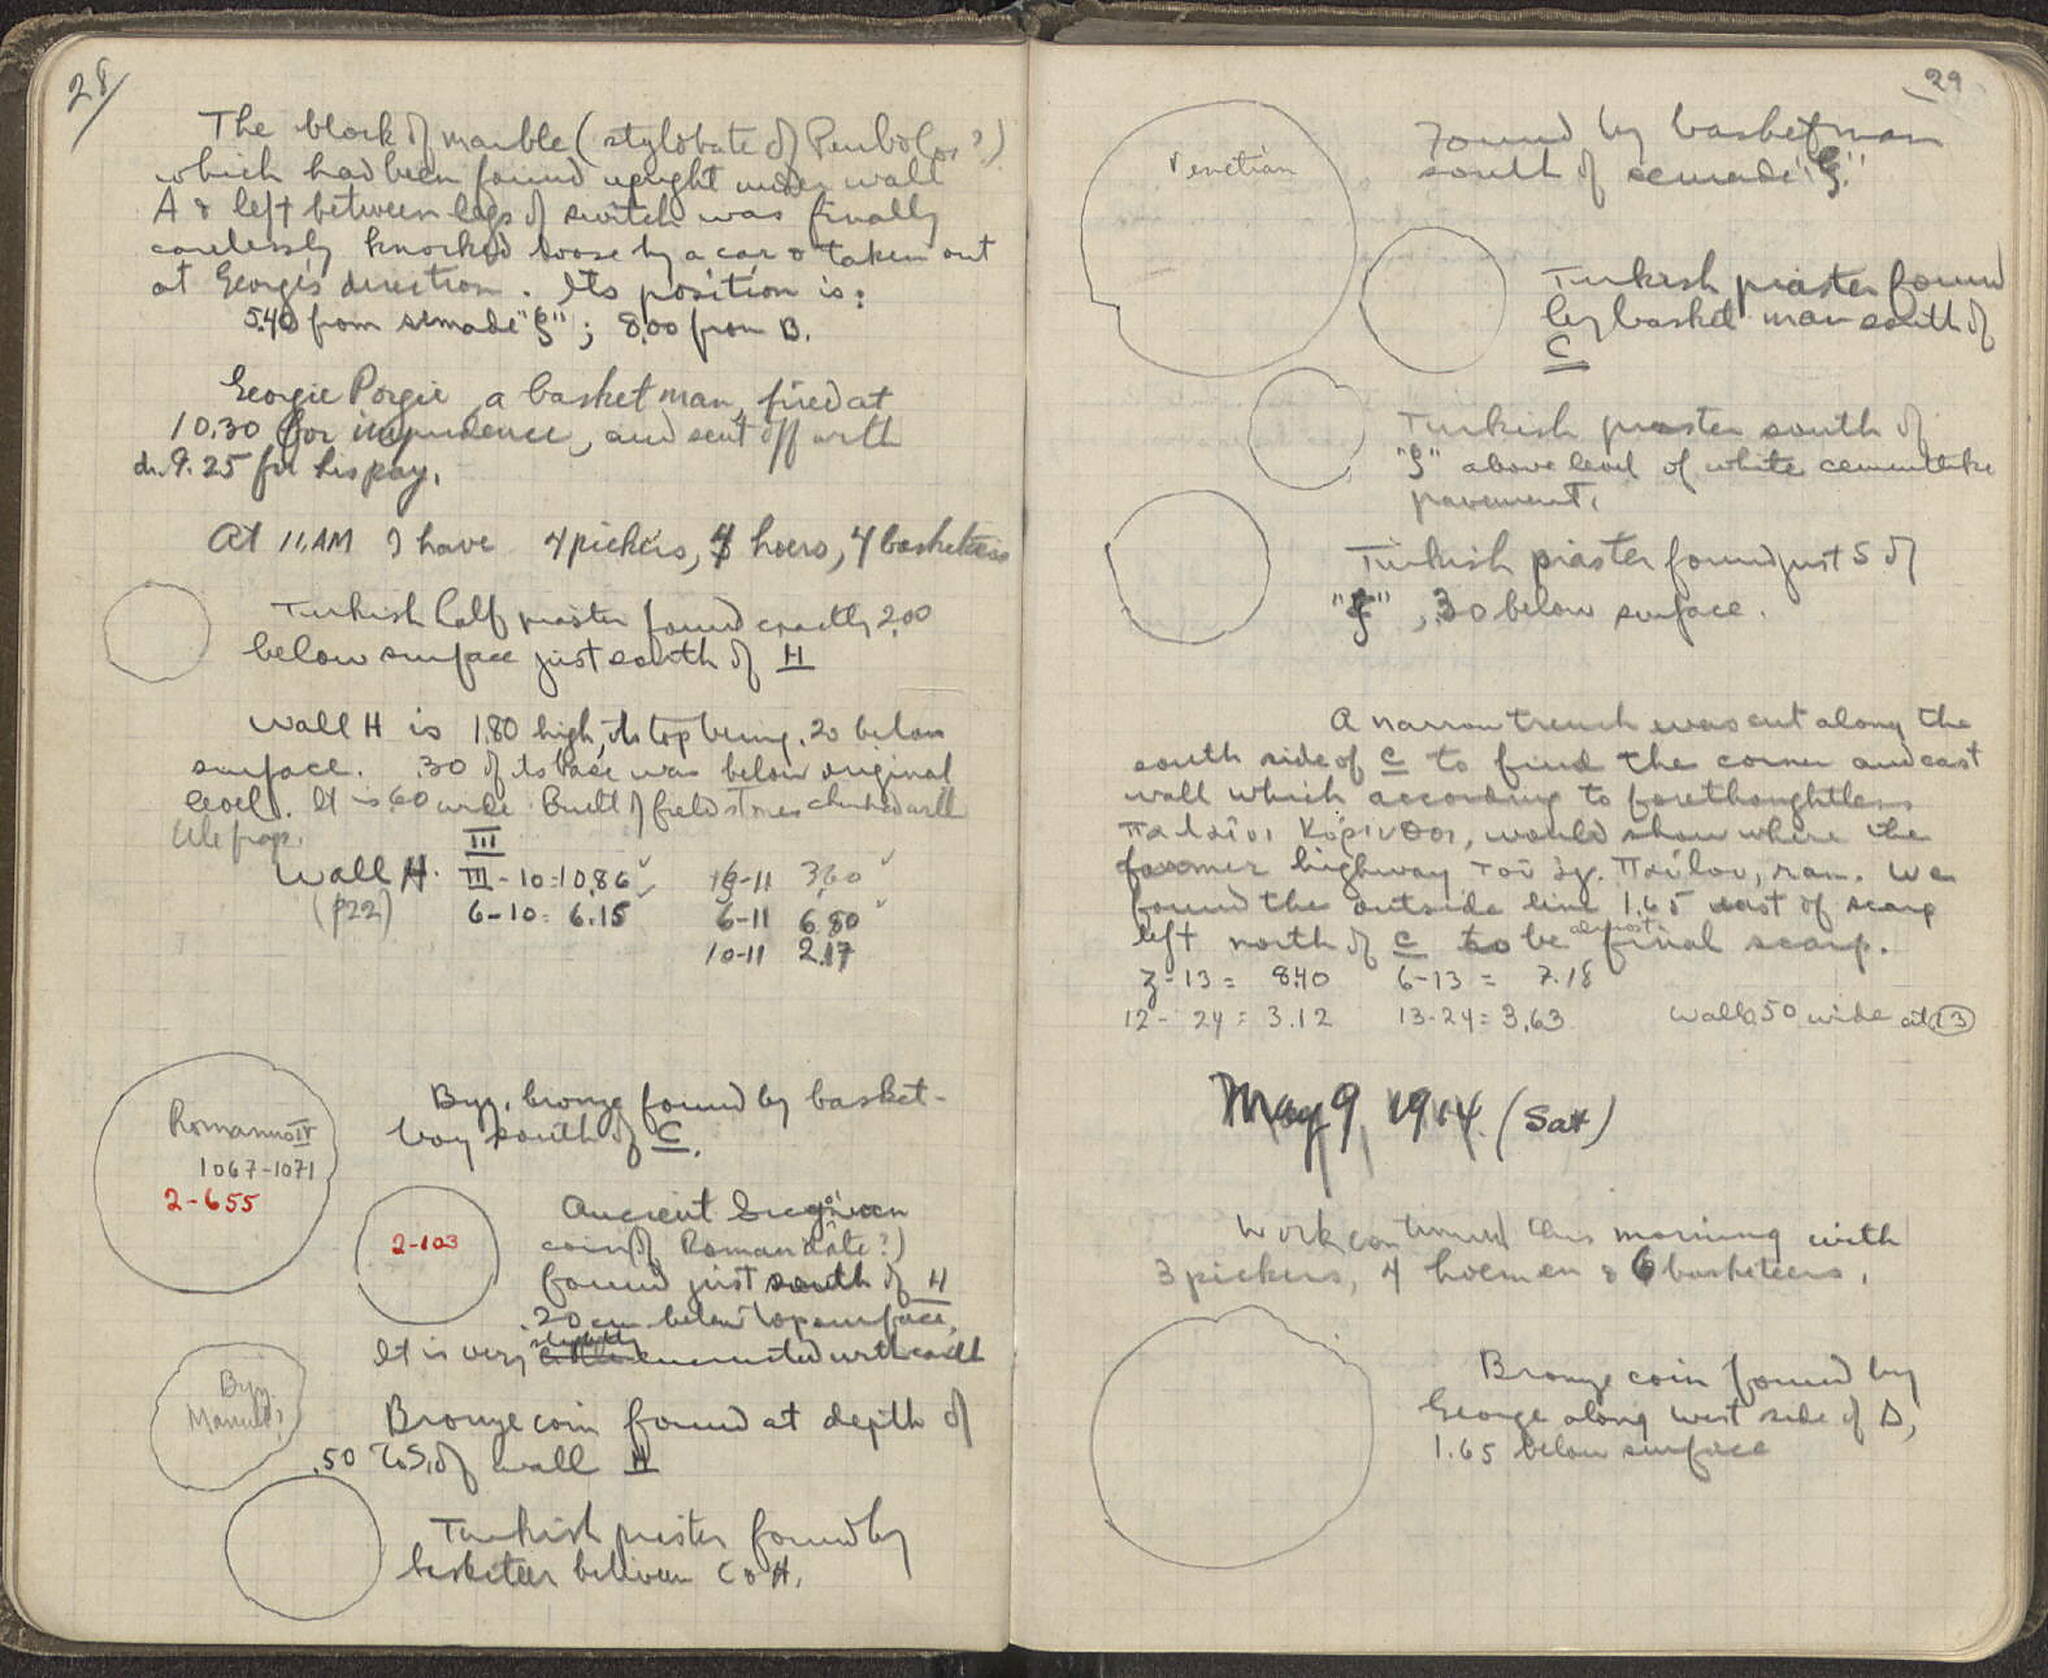 28/
The block of marble (stylobate of Peribolos?)
which had been found upright under wall
A & left between legs of switch was finally
carelessly knocked loose by a car & taken out
at George's direction. Its position is:
5.40 from semade "ξ"; 8.00 from B.
Georgie Porgie, a basket man, fired at
10.30 for impudence, and sent off with
dr. 9.25 for his pay.
At 11 AM I have 4 pickers, 4 hoers, 4 basketeers
Turkish half piaster found exactly 2.00
below surface just south of H
Wall H is 1.80 high, its top being .20 below
surface. .30 of its base was below original
level. It is .60 wide. Built of field stones chinked with
tile frags.
III
Wall H. III-10=10.86 ✓ 13-11 3.60 ✓
(p22) 6-10= 6.15 6-11 6.80 ✓
10-11 2.17
Romanus IV
1067-1071
2-655
Byz. bronze found by basket-
boy south of C.
2-103
Ancient
coin (of Roman date?)
found just south of H
.20 cm below top surface.
It is very slightly encrusted with earth
Byz.
Manuel?
Bronze coin found at depth of
.50 to S. of wall H
Turkish piaster found by
basketeer between C & H.
29
Venetian
Found by basketman
south of semade "ξ"
Turkish piaster found
by basket man south of
C
Turkish piaster south of
"ξ" above level of white cementlike
pavement.
Turkish piaster found just S of
"ξ", .30 below surface.
A narrow trench was cut along the
south side of C to find the corner and east
wall which according to forethoughtless
Παλαῖοι Κόρινθοι, would show where the
former highway τοῦ ἁγ. Παύλου, ran. We
found the outside line 1.65 east of scarp
left north of C to be almost final scarp.
3-13= 8.40 6-13= 7.18
12-24= 3.12 13-24= 3.63 Wall .50 wide at 13
May 9, 1914. (Sat)
Work continued this morning with
3 pickers, 4 hoemen & 6 basketeers.
Bronze coin found by
George along west side of D,
1.65 below surface